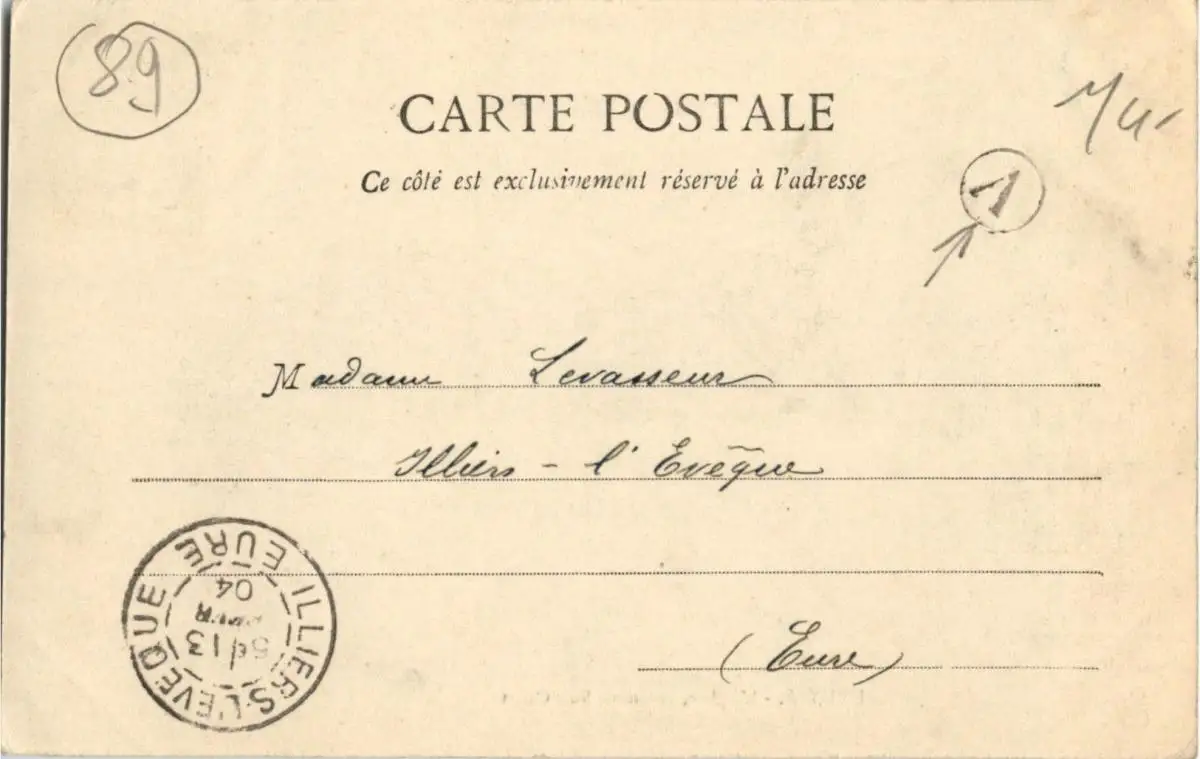 89
CARTE POSTALE
Ce côté est exclusivement réservé à l'adresse
1
Madame Levasseur
Illiers - l'Evêque
(Eure)
ILLIERS-L'EVEQUE
EURE
13
04